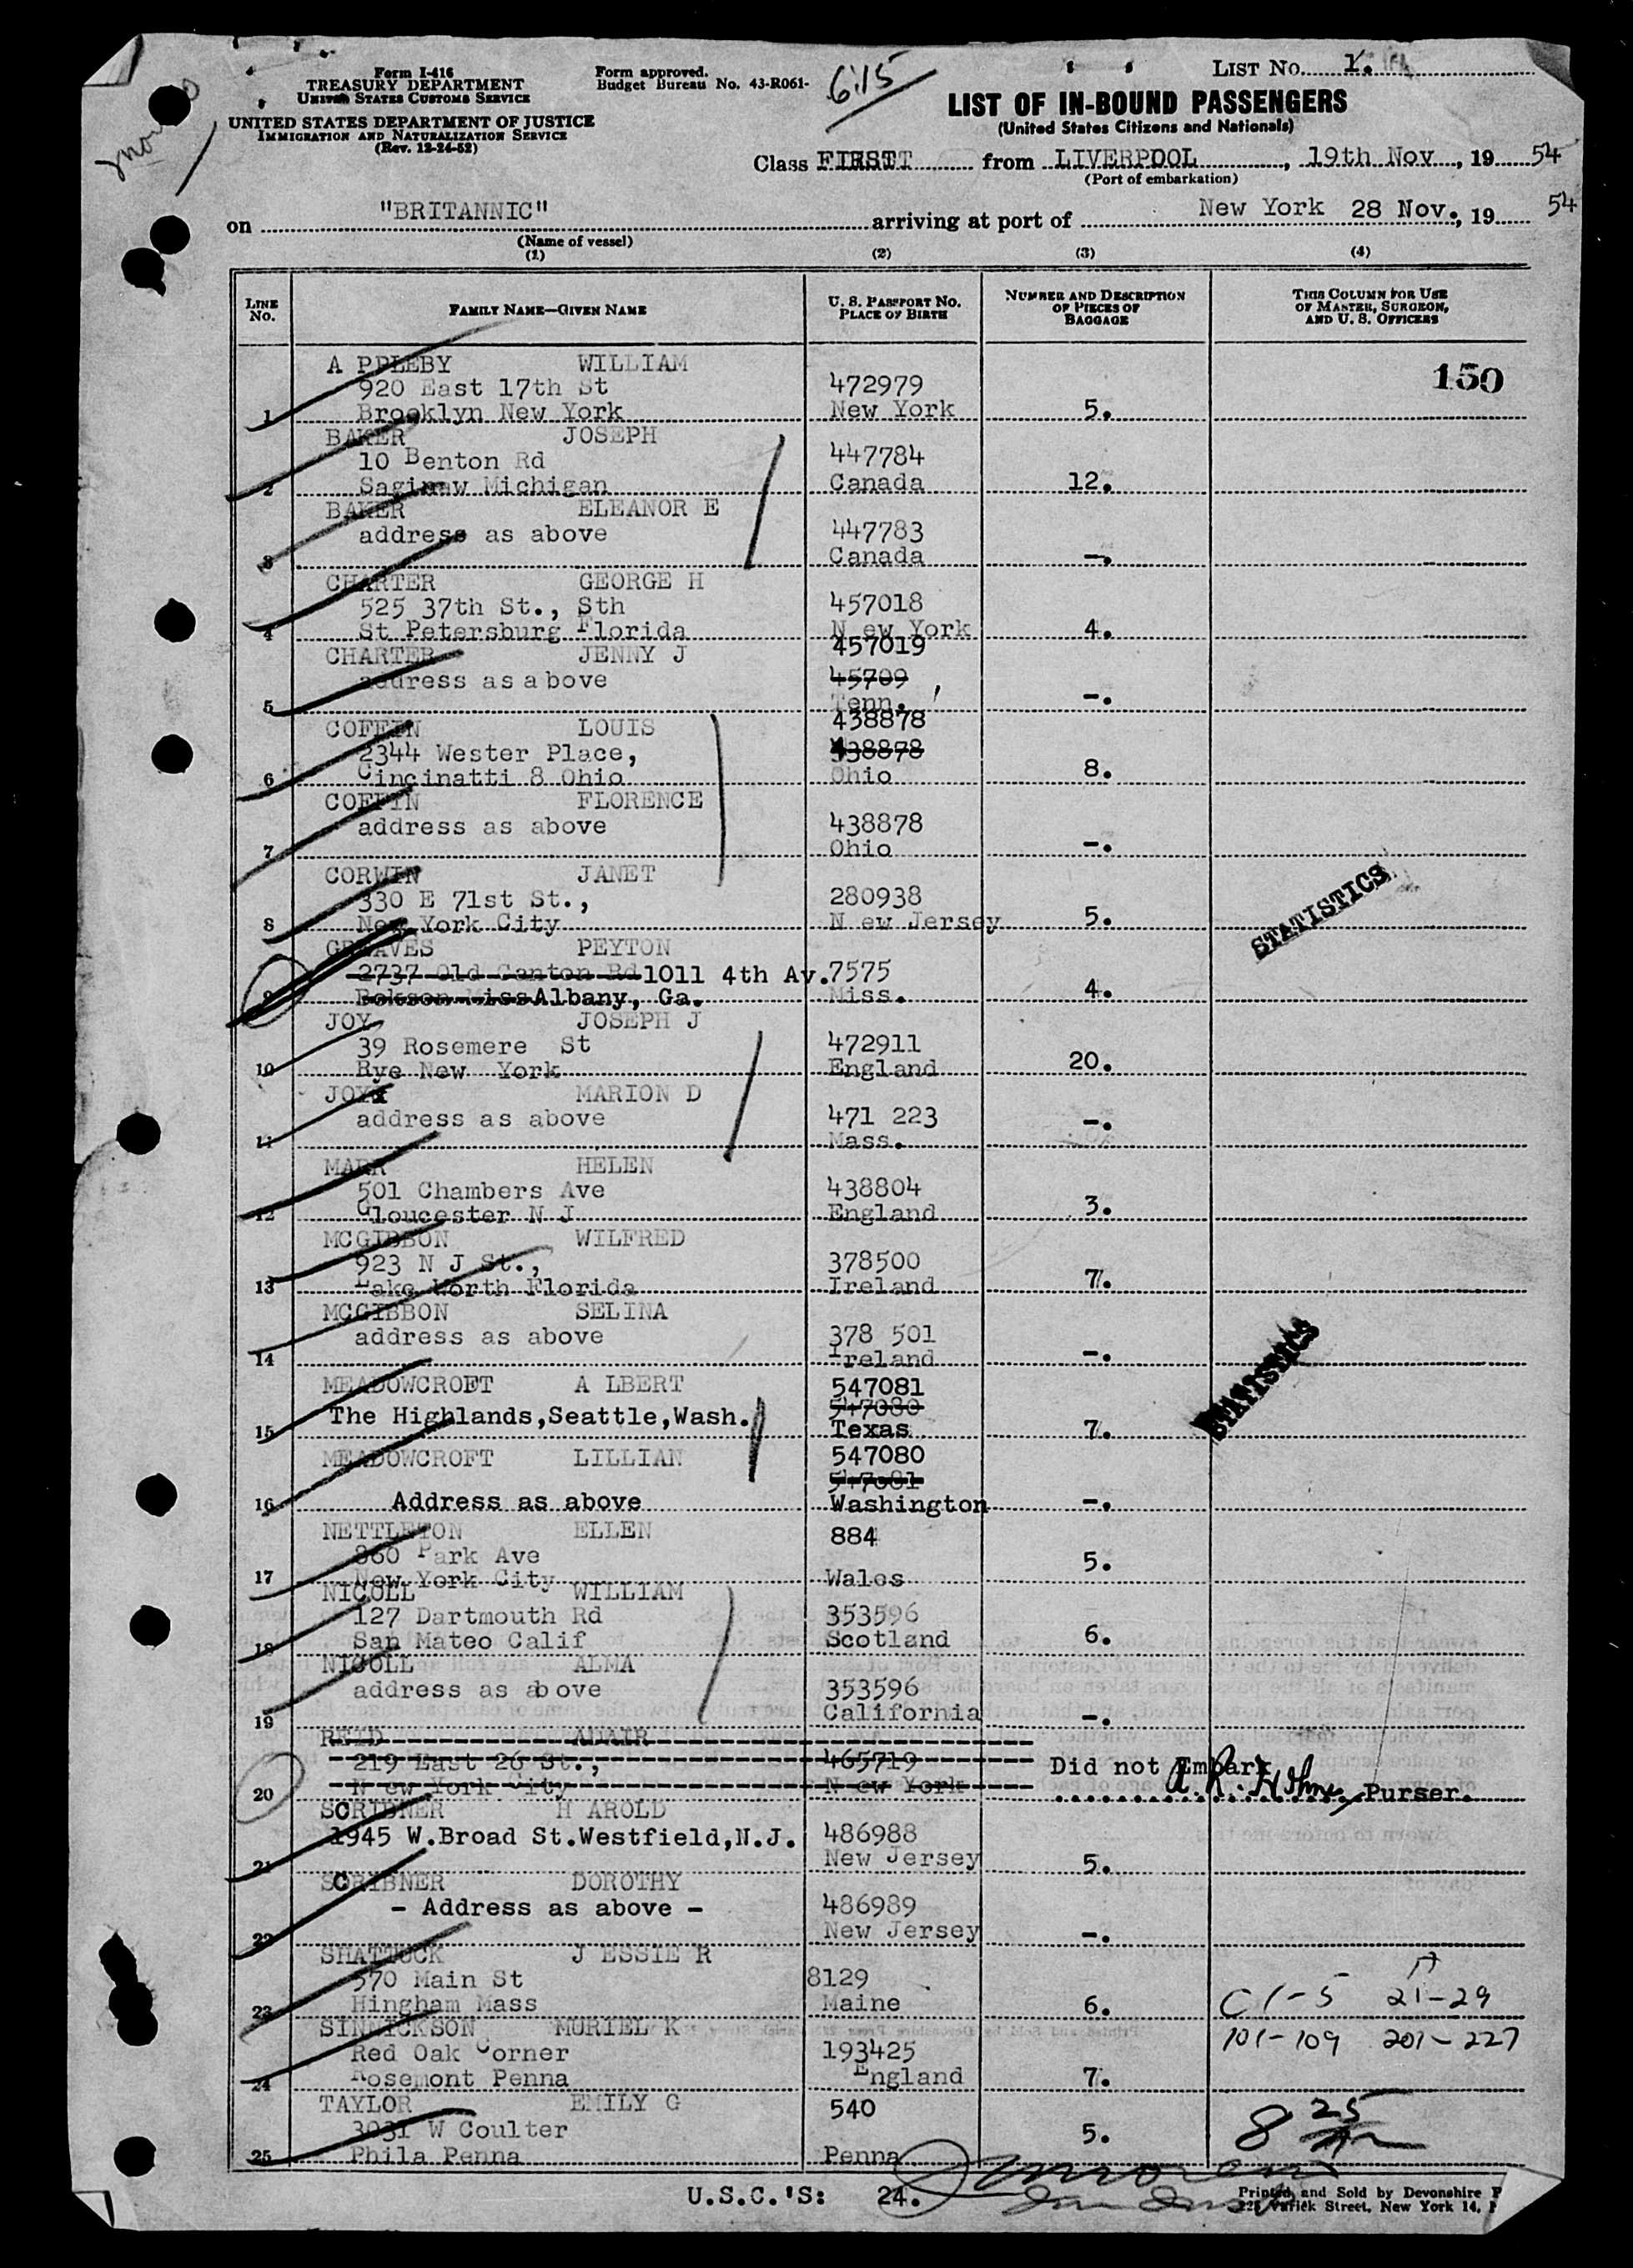 Form I-416
TREASURY DEPARTMENT
UNITED STATES CUSTOMS SERVICE
UNITED STATES DEPARTMENT OF JUSTICE
IMMIGRATION AND NATURALIZATION SERVICE
(Rev. 12-24-52)
Form approved.
Budget Bureau No. 43-R061-
6:15
LIST No. 1.
LIST OF IN-BOUND PASSENGERS
(United States Citizens and Nationals)
Class FIRST from LIVERPOOL, 19th Nov, 19 54
(Port of embarkation)
on "BRITANNIC" arriving at port of New York 28 Nov., 19 54
(Name of vessel)
(1) (2) (3) (4)
LINE No. FAMILY NAME—GIVEN NAME U. S. PASSPORT No. PLACE OF BIRTH NUMBER AND DESCRIPTION OF PIECES OF BAGGAGE THIS COLUMN FOR USE OF MASTER, SURGEON, AND U. S. OFFICERS
150
A PPLEBY WILLIAM
920 East 17th St 472979
1 Brooklyn New York New York 5.
BAKER JOSEPH
10 Benton Rd 447784
2 Saginaw Michigan Canada 12.
BAKER ELEANOR E
address as above 447783
3 Canada -.
CHARTER GEORGE H
525 37th St., Sth 457018
4 St Petersburg Florida N ew York 4.
CHARTER JENNY J 457019
address as a bove 45709
5 Tenn. -.
COFFIN LOUIS 438878
2344 Wester Place, 438878
6 Cincinatti 8 Ohio Ohio 8.
COFFIN FLORENCE
address as above 438878
7 Ohio -.
CORWIN JANET
330 E 71st St., 280938
8 New York City N ew Jersey 5.
STATISTICS
GREAVES PEYTON
2737 Old Canton Rd 1011 4th Av. 7575
9 Albany, Ga. Miss. 4.
JOY JOSEPH J
39 Rosemere St 472911
10 Rye New York England 20.
JOY MARION D
address as above 471 223
11 Mass. -.
MARR HELEN
501 Chambers Ave 438804
12 Gloucester N J England 3.
MCGIBBON WILFRED
923 N J St., 378500
13 Lake Worth Florida Ireland 7.
MCGIBBON SELINA
address as above 378 501
14 Ireland -.
STATISTICS
MEADOWCROFT A LBERT 547081
The Highlands,Seattle,Wash. 547080
15 Texas 7.
MEADOWCROFT LILLIAN 547080
547081
16 Address as above Washington -.
NETTLETON ELLEN 884
860 Park Ave 5.
17 New York City Wales
NICOLL WILLIAM
127 Dartmouth Rd 353596
18 San Mateo Calif Scotland 6.
NICOLL ALMA
address as ab ove 353596
19 California -.
REID ADAIR
219 East 26 St., 465719 Did not Embark
20 N ew York City N ew York Purser.
SCRIBNER H AROLD
1945 W.Broad St.Westfield,N.J. 486988
21 New Jersey 5.
SCRIBNER DOROTHY
- Address as above - 486989
22 New Jersey -.
SHATTUCK J ESSIE R
570 Main St 8129
23 Hingham Mass Maine 6. C 1-5 21-29
SINNICKSON MURIEL K 101-109 201-227
Red Oak Corner 193425
24 Rosemont Penna England 7.
TAYLOR EMILY G 540
3031 W Coulter 5. 8 25
25 Phila Penna Penna
U.S.C.'S: 24.
Printed and Sold by Devonshire
Varick Street, New York 14,